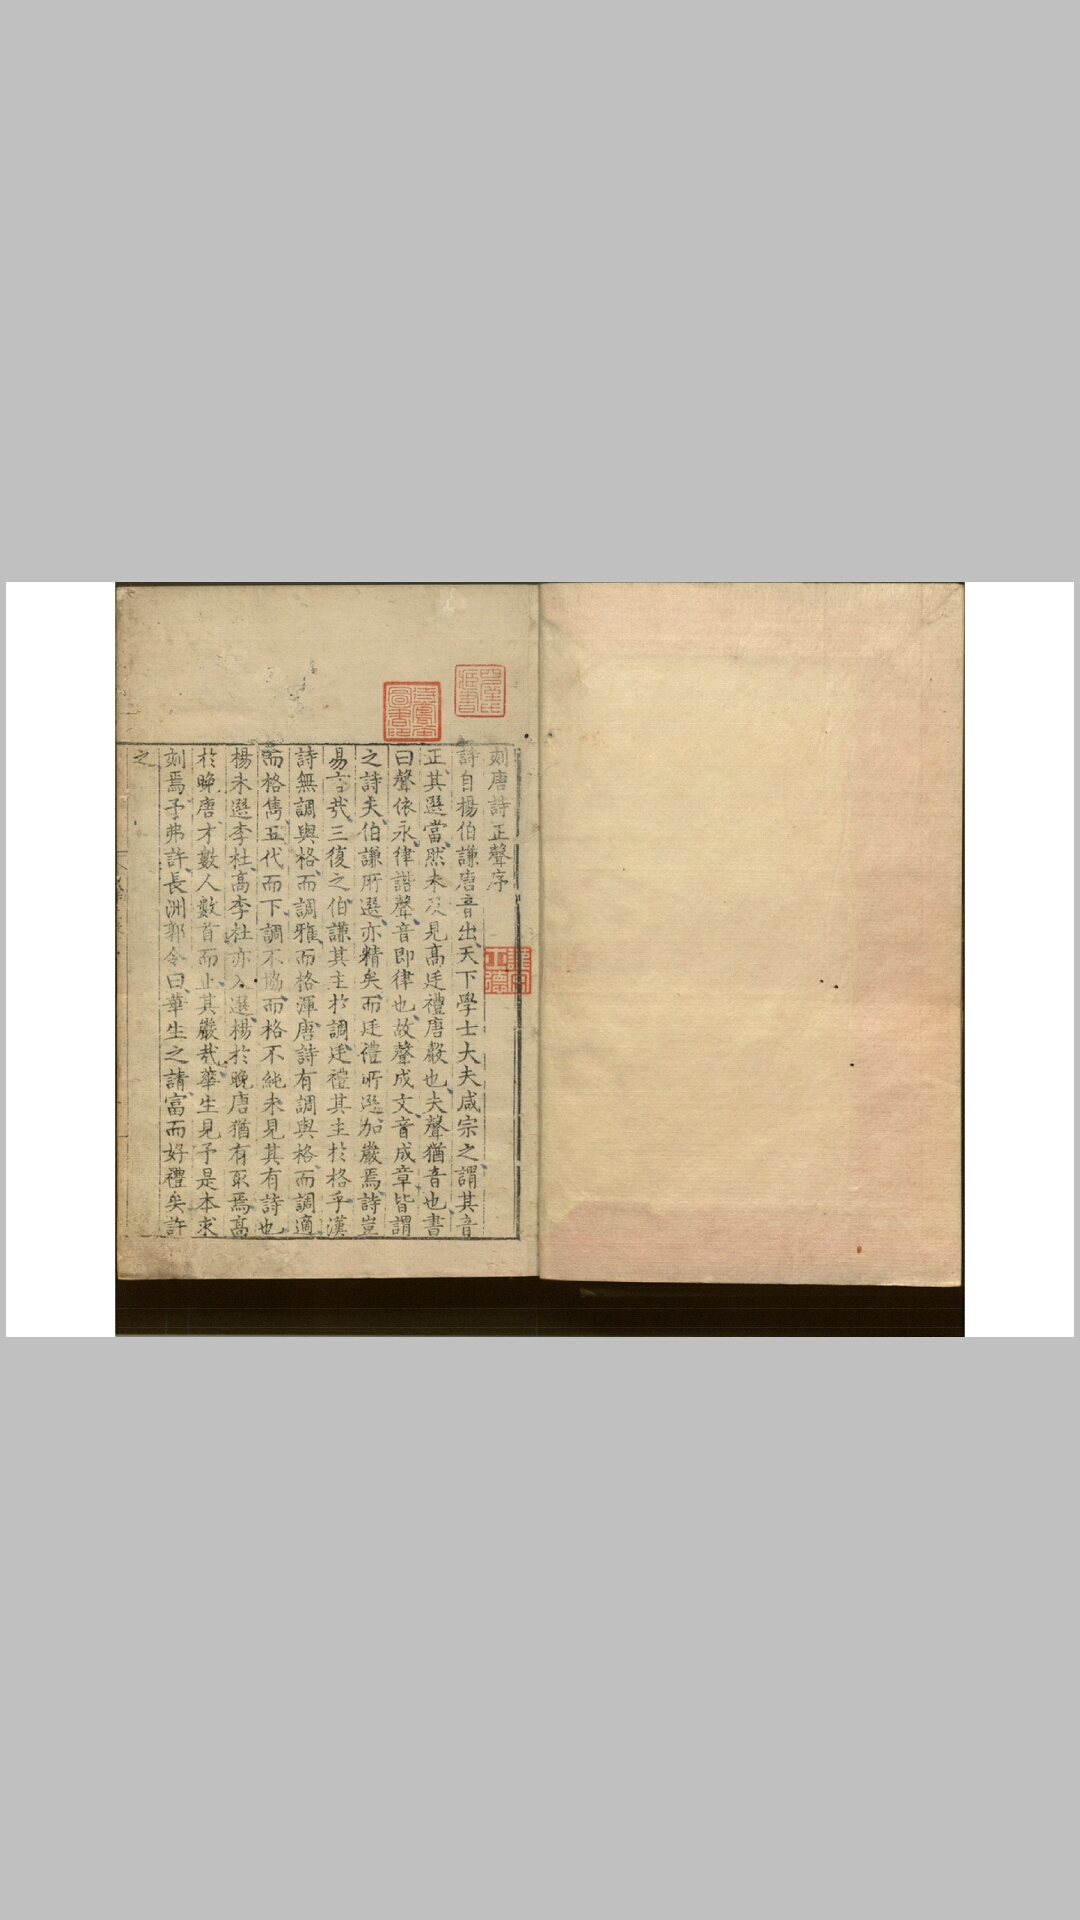 刻唐詩正聲序
詩自楊伯謙唐音出天下學士大夫咸宗之謂其音
正其選當然未及見高廷禮唐聲也夫聲猶音也書
曰聲依永律諧聲音即律也故聲成文音成章皆謂
之詩夫伯謙所選亦精矣而廷禮所選加嚴焉詩豈
易言哉三復之伯謙其主於調廷禮其主於格乎漢
詩無調與格而調雅而格渾唐詩有調與格而調適
而格雋五代而下調不協而格不純未見其有詩也
楊未選李杜高李杜亦入選楊於晚唐猶有取焉高
於晚唐才數人數首而止其嚴哉華生見予是本求
刻焉予弗許長洲郭令曰華生之請富而好禮矣許
之